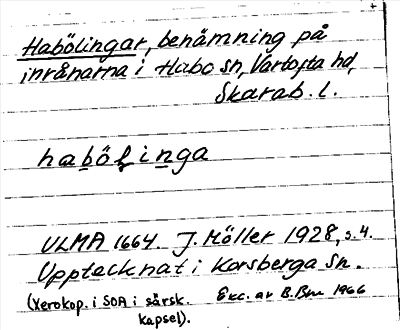 Habölingar, benämning på
inrånarna i Habo sn, Vartofta hd,
Skarab. l.
haböļinga
ULMA 1664. J. Möller 1928, s. 4.
Upptecknat i Korsberga sn.
(Xerokop. i SOA i särsk. Exc. av B. Bm 1966
kapsel).